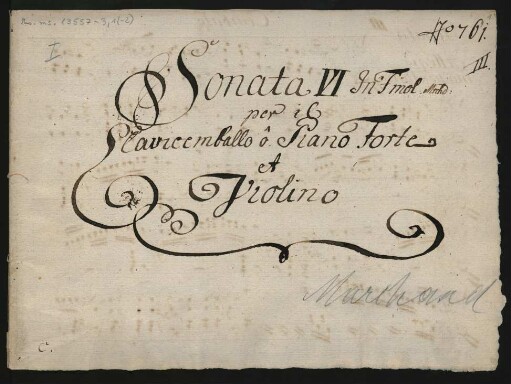 Mus. ms. 13557-3,1(-2)
No 761.
I.
III
Sonata VI In F mol.
per il
Clavicemballo ô Piano Forte
et
Violino
Marchand
C.